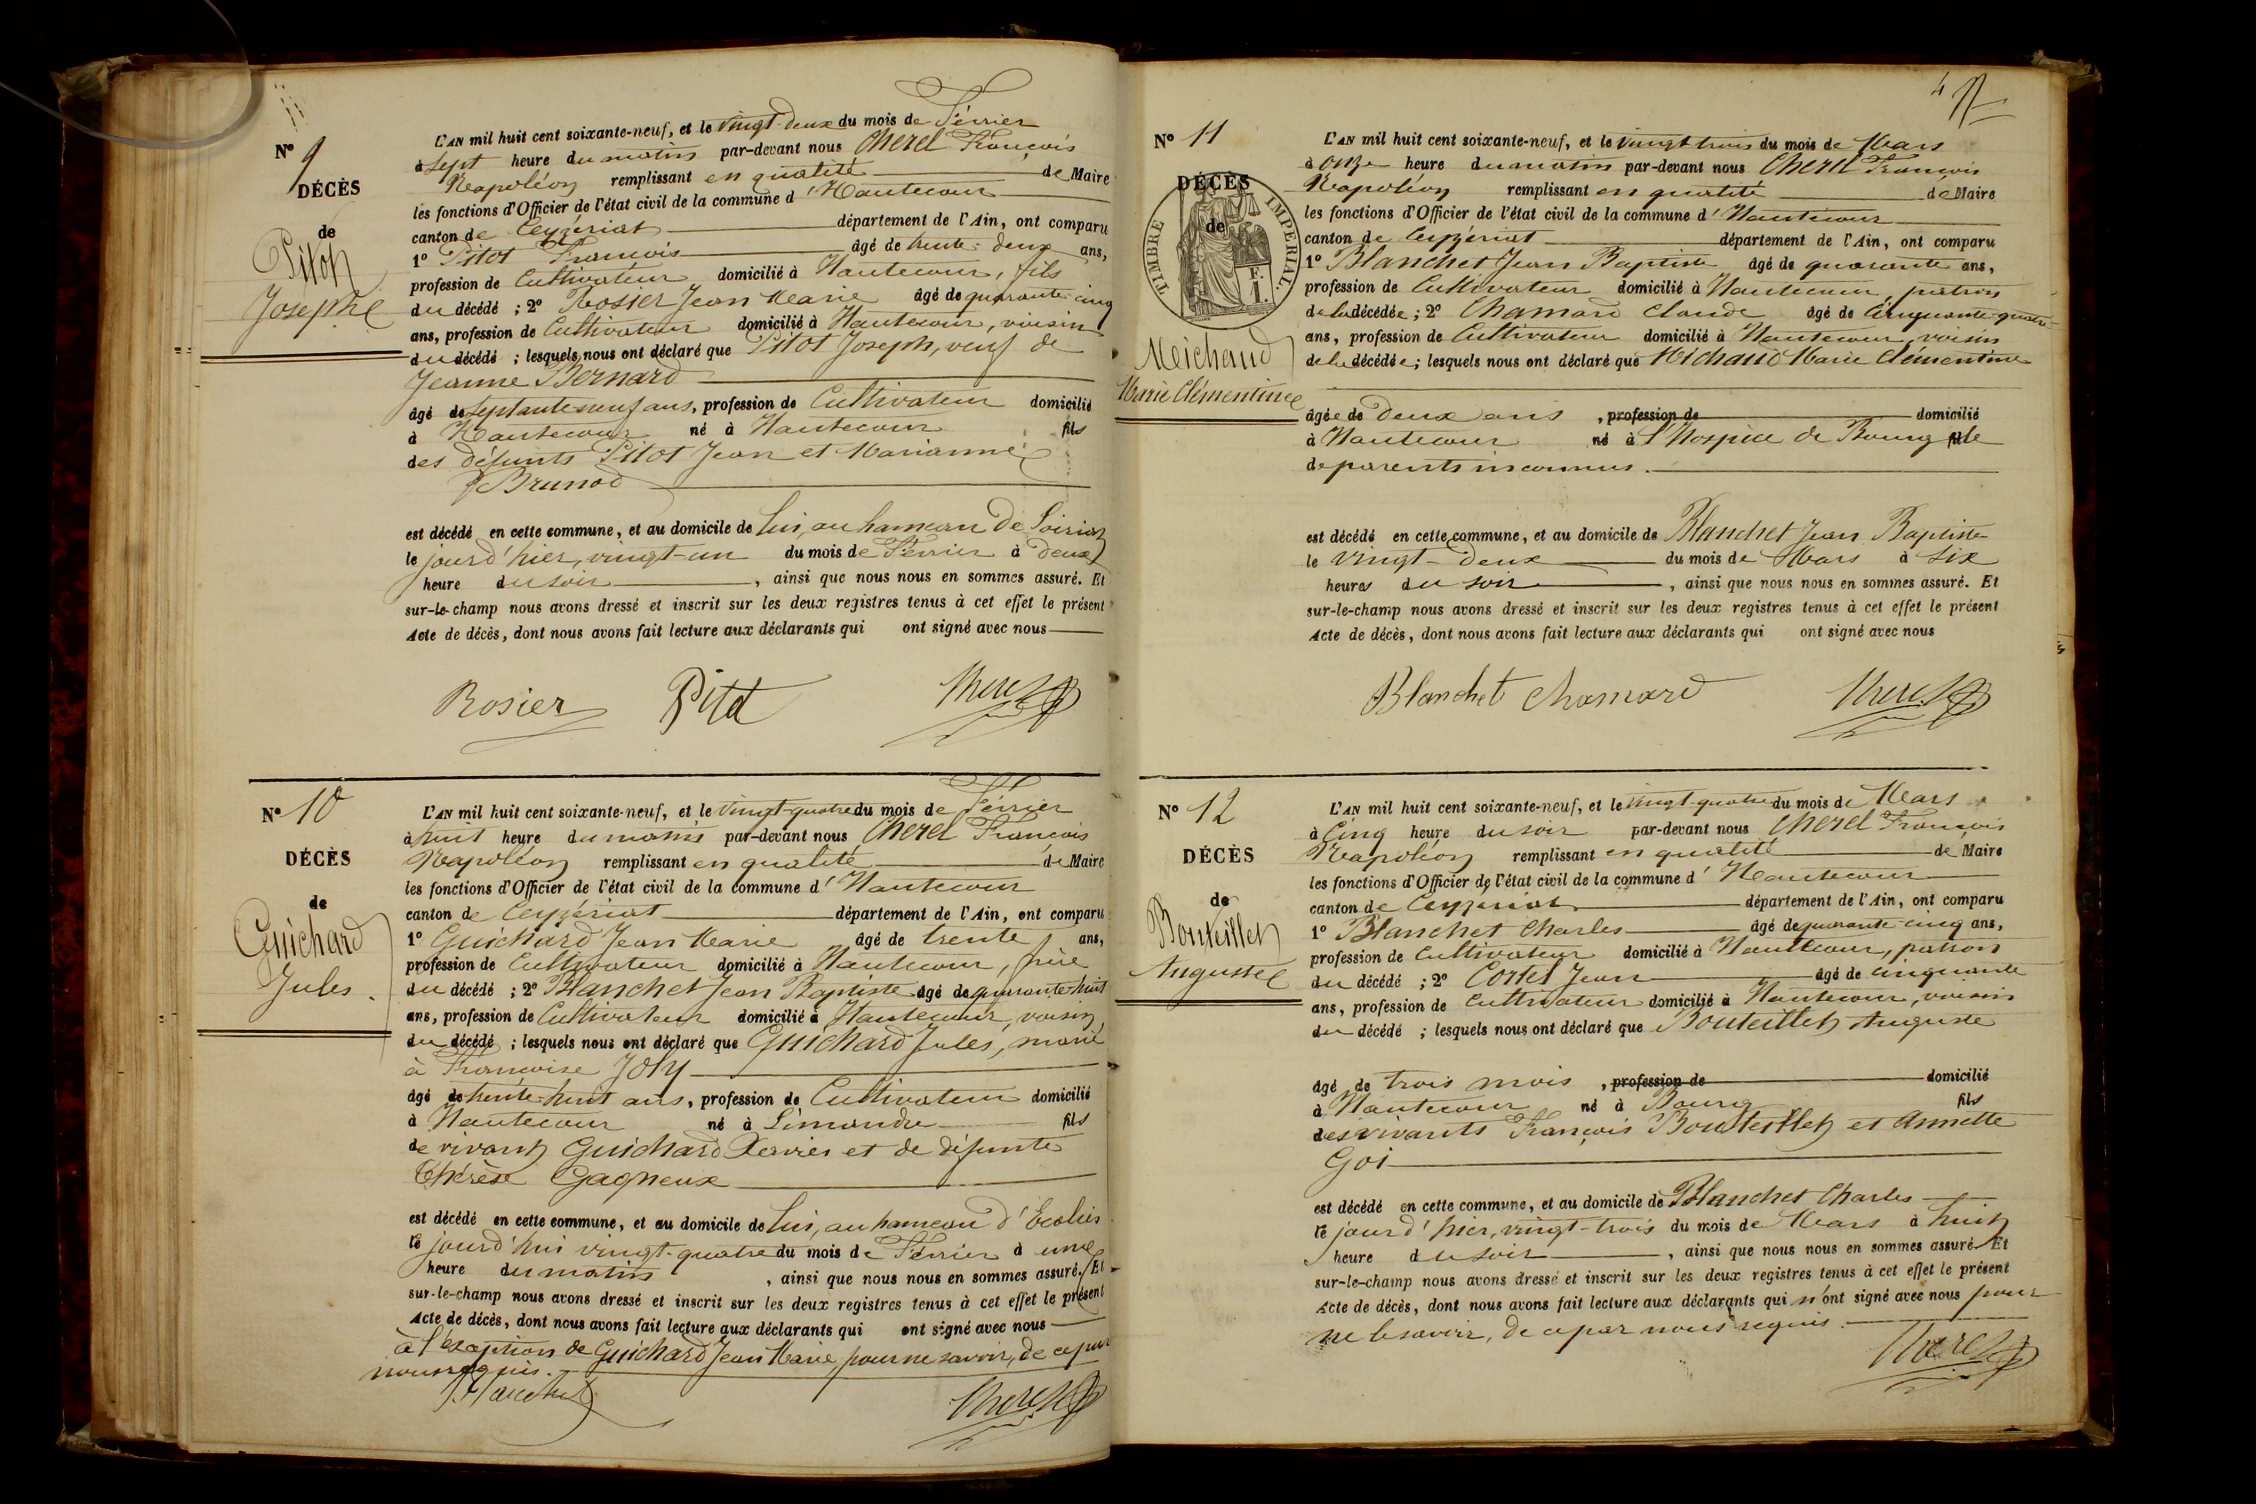 Nº 9
DÉCÈS
de
Pitot
Joseph
L'AN mil huit cent soixante-neuf, et le vingt-deux du mois de Février
à sept heure du matin par-devant nous Cherel François
Napoléon remplissant en qualité de Maire
les fonctions d'Officier de l'état civil de la commune d'Hautecour
canton de Ceyzériat département de l'Ain, ont comparu
1º Pitot François âgé de trente-deux ans,
profession de Cultivateur domicilié à Hautecour, fils
du décédé ; 2º Rosier Jean Marie âgé de quarante-cinq
ans, profession de Cultivateur domicilié à Hautecour, voisin
du décédé ; lesquels nous ont déclaré que Pitot Joseph, veuf de
Jeanne Bernard
âgé de septante neuf ans, profession de Cultivateur domicilié
à Hautecour né à Hautecour fils
des défunts Pitot Jean et Marianne
Brunod
est décédé en cette commune, et au domicile de lui, au hameau de
le jourd'hier, vingt-un du mois de Février à deux
heure du soir, ainsi que nous nous en sommes assuré. Et
sur-le-champ nous avons dressé et inscrit sur les deux registres tenus à cet effet le présent
Acte de décès, dont nous avons fait lecture aux déclarants qui ont signé avec nous
Rosier Pitot Cherel
Nº 10
DÉCÈS
de
Guichard
Jules.
L'AN mil huit cent soixante-neuf, et le vingt-quatre du mois de Février
à huit heure du matin par-devant nous Cherel François
Napoléon remplissant en qualité de Maire
les fonctions d'Officier de l'état civil de la commune d'Hautecour
canton de Ceyzériat département de l'Ain, ont comparu
1º Guichard Jean Marie âgé de trente ans,
profession de Cultivateur domicilié à Hautecour, frère
du décédé ; 2º Blanchet Jean Baptiste âgé de quarante-huit
ans, profession de Cultivateur domicilié à Hautecour, voisin
du décédé ; lesquels nous ont déclaré que Guichard Jules, marié
à Françoise Joly
âgé de trente-huit ans, profession de Cultivateur domicilié
à Hautecour né à Simandre fils
de vivant Guichard Xavier et de défunte
Thérèse Gagneux
est décédé en cette commune, et au domicile de lui, au hameau d'
le jourd'hui vingt-quatre du mois de Février à une
heure du matin, ainsi que nous nous en sommes assuré. Et
sur-le-champ nous avons dressé et inscrit sur les deux registres tenus à cet effet le présent
Acte de décès, dont nous avons fait lecture aux déclarants qui ont signé avec nous
à l'exception de Guichard Jean Marie, pour ne savoir, de ce par
nous requis.
Blanchet Cherel
4
Nº 11
DÉCÈS
de
TIMBRE IMPÉRIAL.
Meichaud
Marie Clémentine
L'AN mil huit cent soixante-neuf, et le vingt trois du mois de Mars
à onze heure du matin par-devant nous Cherel François
Napoléon remplissant en qualité de Maire
les fonctions d'Officier de l'état civil de la commune d'Hautecour
canton de Ceyzériat département de l'Ain, ont comparu
1º Blanchet Jean Baptiste âgé de quarante ans,
profession de Cultivateur domicilié à Hautecour patron
de la décédée ; 2º Chamard Claude âgé de Cinquante-quatre
ans, profession de Cultivateur domicilié à Hautecour voisin
de la décédée ; lesquels nous ont déclaré que Michaud Marie Clémentine
âgée de deux ans, profession de domicilié
à Hautecour né à l'Hospice de Bourg fille
de parents inconnus.
est décédé en cette commune, et au domicile de Blanchet Jean Baptiste
le vingt-deux du mois de Mars à six
heures du soir, ainsi que nous nous en sommes assuré. Et
sur-le-champ nous avons dressé et inscrit sur les deux registres tenus à cet effet le présent
Acte de décès, dont nous avons fait lecture aux déclarants qui ont signé avec nous
Blanchet Chamard Cherel
Nº 12
DÉCÈS
de
Bouteillet
Auguste
L'AN mil huit cent soixante-neuf, et le vingt-quatre du mois de Mars
à Cinq heure du soir par-devant nous Cherel François
Napoléon remplissant en qualité de Maire
les fonctions d'Officier de l'état civil de la commune d'Hautecour
canton de Ceyzériat département de l'Ain, ont comparu
1º Blanchet Charles âgé de quarante-cinq ans,
profession de Cultivateur domicilié à Hautecour, patron
du décédé ; 2º Cortel Jean âgé de cinquante
ans, profession de Cultivateur domicilié à Hautecour, voisin
du décédé ; lesquels nous ont déclaré que Bouteillet Auguste
âgé de trois mois, profession de domicilié
à Hautecour né à Bourg fils
des vivants François Bouteillet et Annette
Goi
est décédé en cette commune, et au domicile de Blanchet Charles
le jourd'hier, vingt-trois du mois de Mars à huit
heure du soir, ainsi que nous nous en sommes assuré. Et
sur-le-champ nous avons dressé et inscrit sur les deux registres tenus à cet effet le présent
Acte de décès, dont nous avons fait lecture aux déclarants qui n'ont signé avec nous pour
ne le savoir, de ce par nous requis.
Cherel